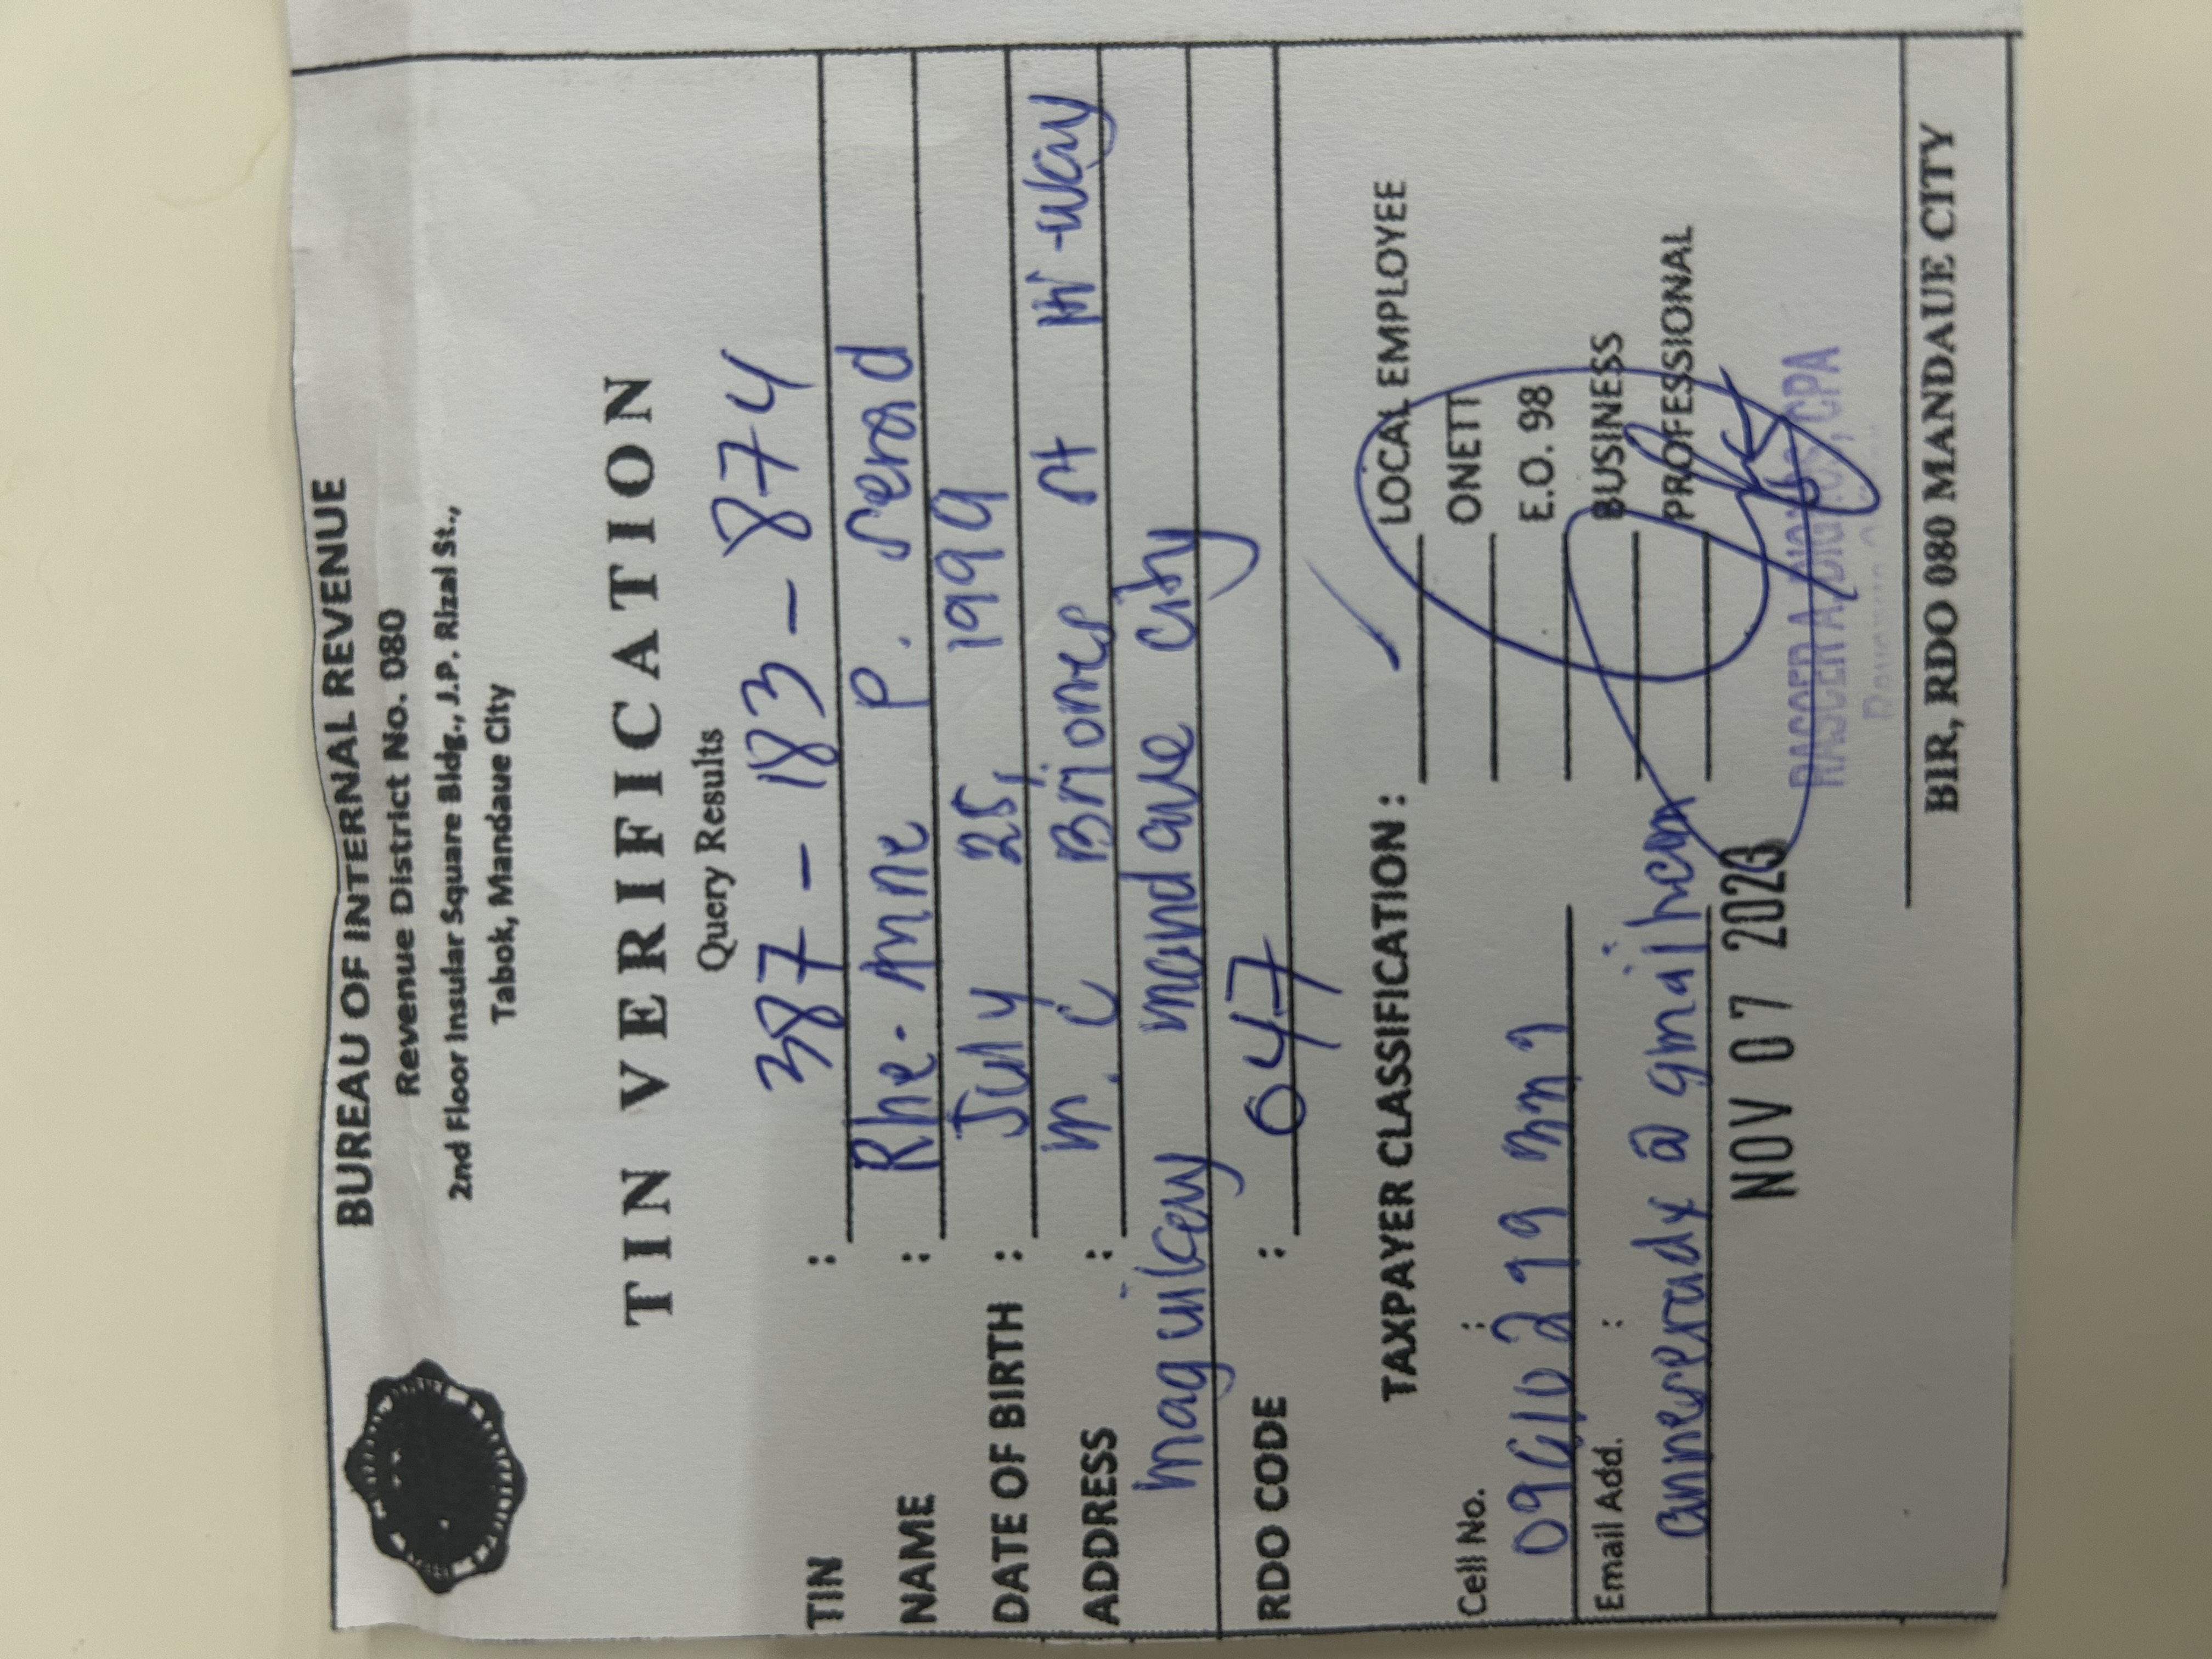 BUREAU OF INTERNAL REVENUE
Revenue District No. 080
2nd Floor Insular Square Bldg., J.P. Rizal St.,
Tabok, Mandaue City
TIN VERIFICATION
Query Results
TIN : 387 - 183 - 874
NAME : Rhe-Anne P. Serad
DATE OF BIRTH : July 25, 1999
ADDRESS : M.C Briones St Hi-way
Maguikay Mandaue City
RDO CODE : 047
TAXPAYER CLASSIFICATION :
LOCAL EMPLOYEE
ONETT
E.O. 98
BUSINESS
PROFESSIONAL
Cell No. :
Email Add. :
NOV 07 2023
CPA
BIR, RDO 080 MANDAUE CITY